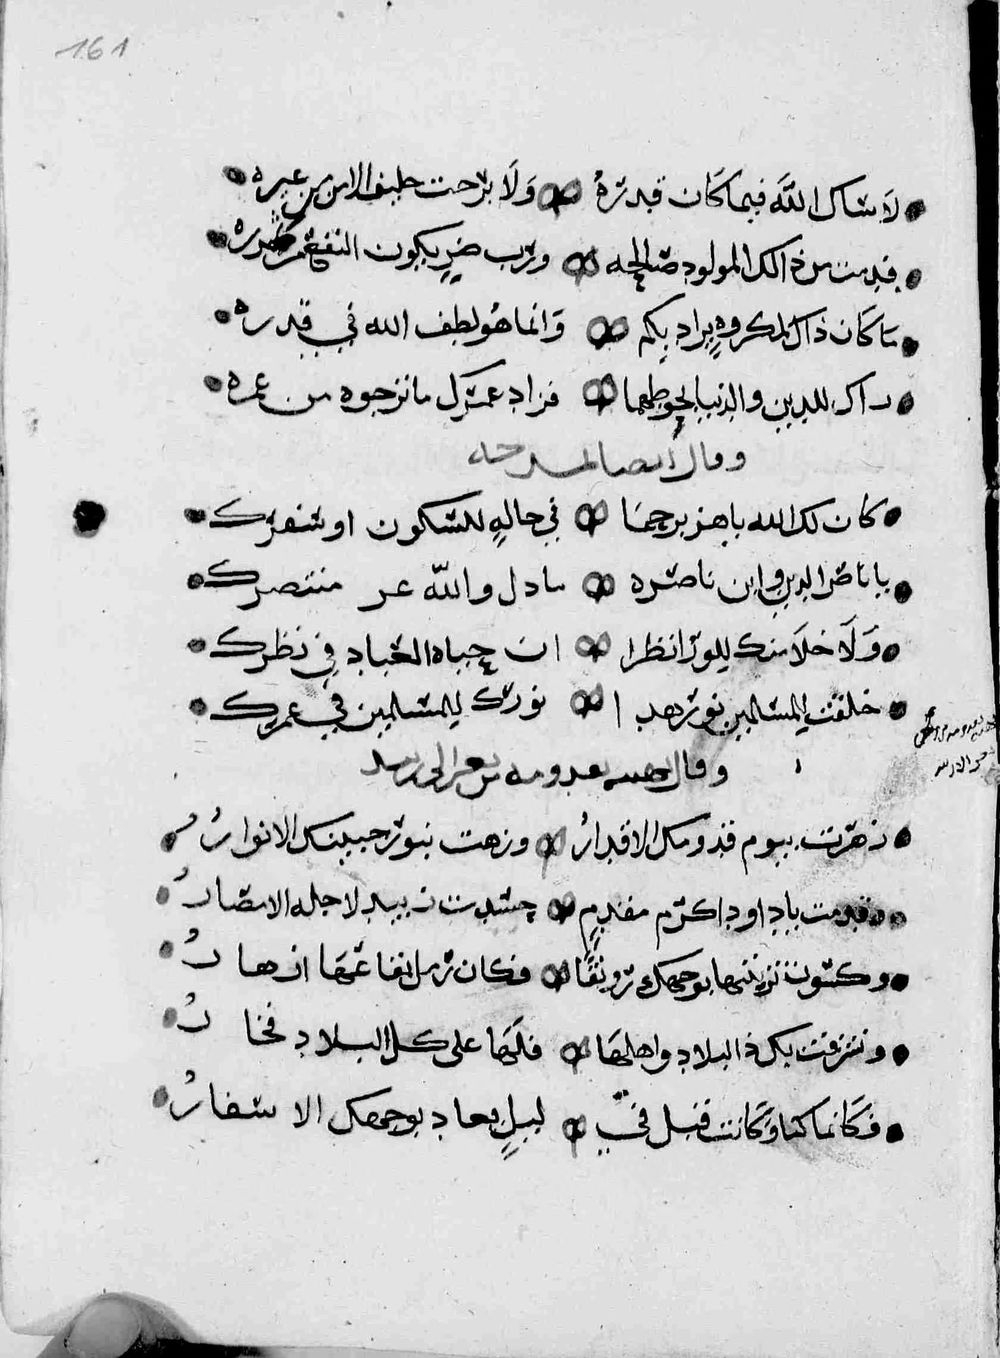 161
لا شاك الله فيما كان قدره ولا برحت حليف الامن من عبره
قدمت من ذالك المولود صالحه ورب ضر يكون النفع من ضرره
ما كان ذاك المكروه يراد بكم وانما هو لطف الله في قدره
داك للدين والدنيا لحوطهما فزاد عمرك ما نرجوه من عمره
وقال ايضا لمدحه
كان لك الله يا هزبر حما في حاله للسكون او سفرك
يا ناصر الدين وابن ناصره ما دل والله عر منتصرك
ولا خلا منك للورا نظرا ان حياه العباد في نظرك
خلقت للمسلمين نور هدا نورك للمسلمين في عمرك
وقال يهنيه بقدومه من تعز الى زبيد
زهرت بيوم قدومك الاقدار وزهت بنور جبينك الانوار
قدمت يا داود اكرم مقدم حسدت زبيد لاجله الامصار
وكسوت تربتها بوجهك رونقا فكان رمل بقاعها ازهار
وتشرفت بك ذا البلاد واهلها فلها على كل البلاد فخار
فكانما كنا وكانت قبل في ليل بعاد بوجهك الاسفار